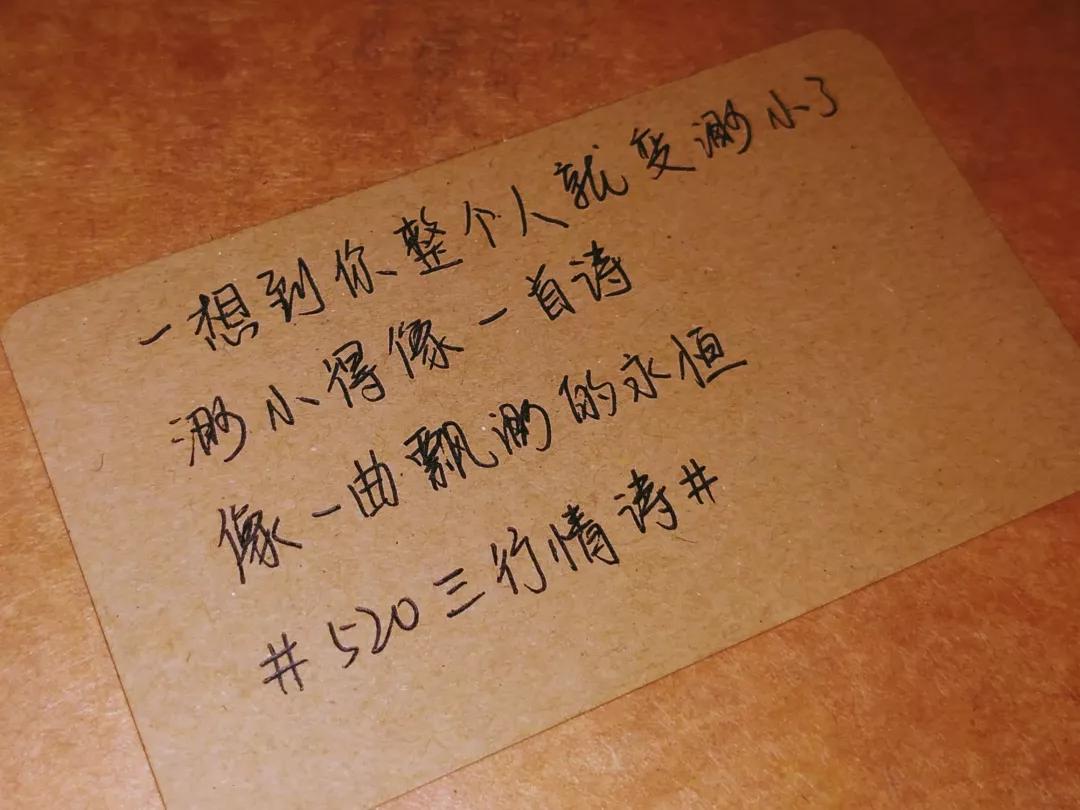 一想到你整个人就变渺小了
渺小得像一首诗
像一曲飘渺的永恒
#520三行情诗#